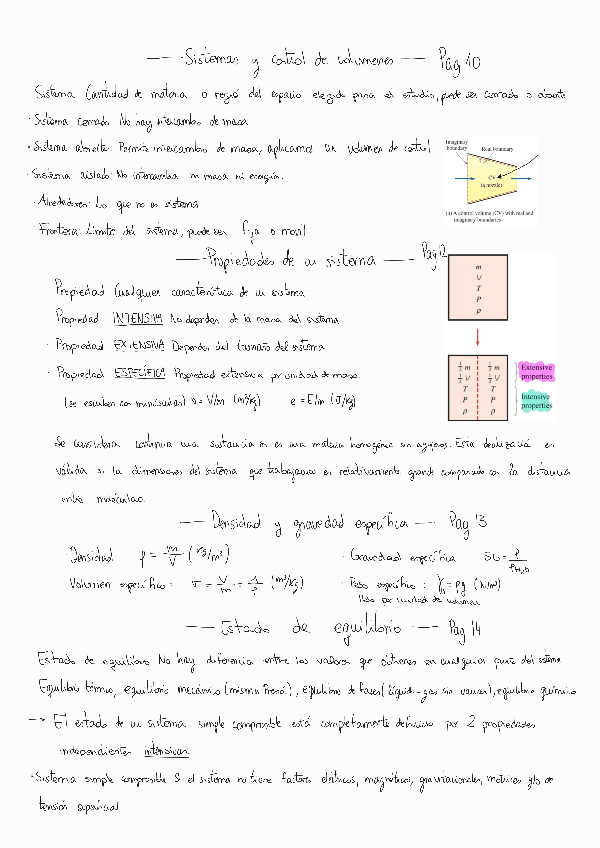 Sistemas y control de volumenes — Pág 10
Sistema Cantidad de materia o región del espacio elegida para el estudio, puede ser cerrado o abierto
· Sistema cerrado No hay intercambios de masa
· Sistema abierto: Permite intercambios de masa, aplicamos un volumen de control
· Sistema aislado: No intercambia ni masa ni energía.
· Alrededores: Lo que no es sistema
· Frontera: Límite del sistema, puede ser fija o movil
Imaginary boundary
Real boundary
CV
(a nozzle)
(a) A control volume (CV) with real and
imaginary boundaries
Propiedades de un sistema — Pag 12
Propiedad Cualquier característica de un sistema
Propiedad INTENSIVA No dependen de la masa del sistema
· Propiedad EXTENSIVA Dependen del tamaño del sistema
· Propiedad ESPECÍFICA Propiedad extensiva por unidad de masa
(se escriben con minúsculas) v = V/m (m³/kg) e = E/m (J/kg)
m
V
T
P
ρ
½ m ½ m
½ V ½ V
T T
P P
ρ ρ
Extensive
properties
Intensive
properties
Se considera continua una sustancia si es una materia homogénea sin agujeros. Esta idealización es
válida si la dimensiones del sistema que trabajamos es relativamente grande comparado con la distancia
entre moléculas.
Densidad y gravedad específica — Pág 13
· Densidad ρ = m/V (kg/m³)
· Gravedad específica SG = ρ/ρH₂O
Volumen específico: v = V/m = 1/ρ (m³/kg)
· Peso específico: γ = ρg (N/m³)
Peso por unidad de volumen
Estado de equilibrio — Pág 14
Estado de equilibrio No hay diferencia entre los valores que obtienes en cualquier punto del sistema
Equilibrio térmico, equilibrio mecánico (misma Presión), equilibrio de fases (líquido-gas sin variar), equilibrio químico
→ El estado de un sistema simple compresible está completamente definido por 2 propiedades
independientes intensivas
· Sistema simple compresible Si el sistema no tiene factores eléctricos, magnéticos, gravitacionales, motrices y/o de
tensión superficial